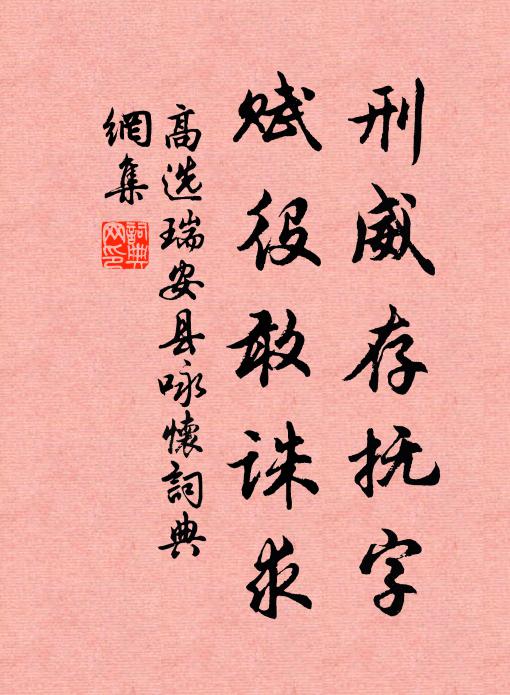 刑威存抚字
赋役敢诛求
高选瑞安县咏懷詞典
網集
詞典
网印